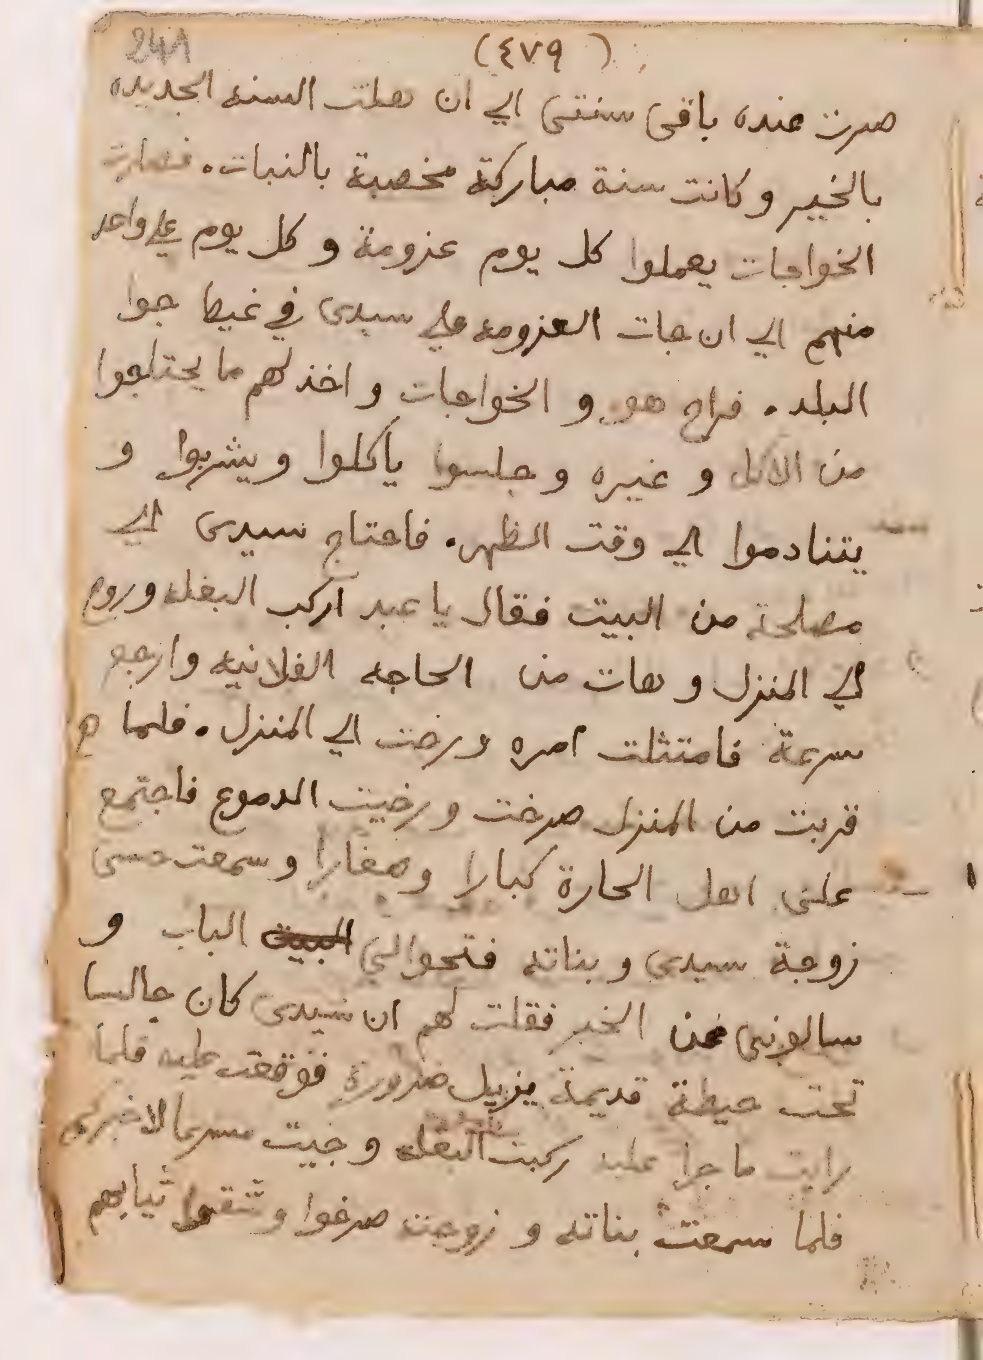 241
(٤٧٩)
صرت عنده باقى سنتى الي ان هلت السنه الجديده
بالخير وكانت سنة مباركة مخصبة بالنبات. فصارت
الخواجات يعملوا كل يوم عزومة و كل يوم علي واحد
منهم الي ان جات العزومه علي سيدى في غيط جوا
البلد. فراح هو و الخواجات واخذ لهم ما يحتاجوا
من الاكل و غيره و جلسوا ياكلوا و يشربوا و
يتنادموا الي وقت الظهر. فاحتاج سيدى الي
مصلحة من البيت فقال يا عبد اركب البغله وروح
الي المنزل و هات من الحاجه الفلانيه وارجع
سرعة فامتثلت امره ورحت الي المنزل. فلما
قربت من المنزل صرخت و رخيت الدموع فاجتمع
على اهل الحارة كبارا وصغارا و سمعت حسى
زوجة سيدى و بناته فتحوا لي الباب و
سالونى عن الخبر فقلت لهم ان سيدى كان جالسا
تحت حيطة قديمة يزيل ضرورة فوقعت عليه فلما
رايت ما جرا عليه ركبت البغله و جيت مسرعا لاخبركم
فلما سمعت بناته و زوجته صرخوا و شقوا ثيابهم